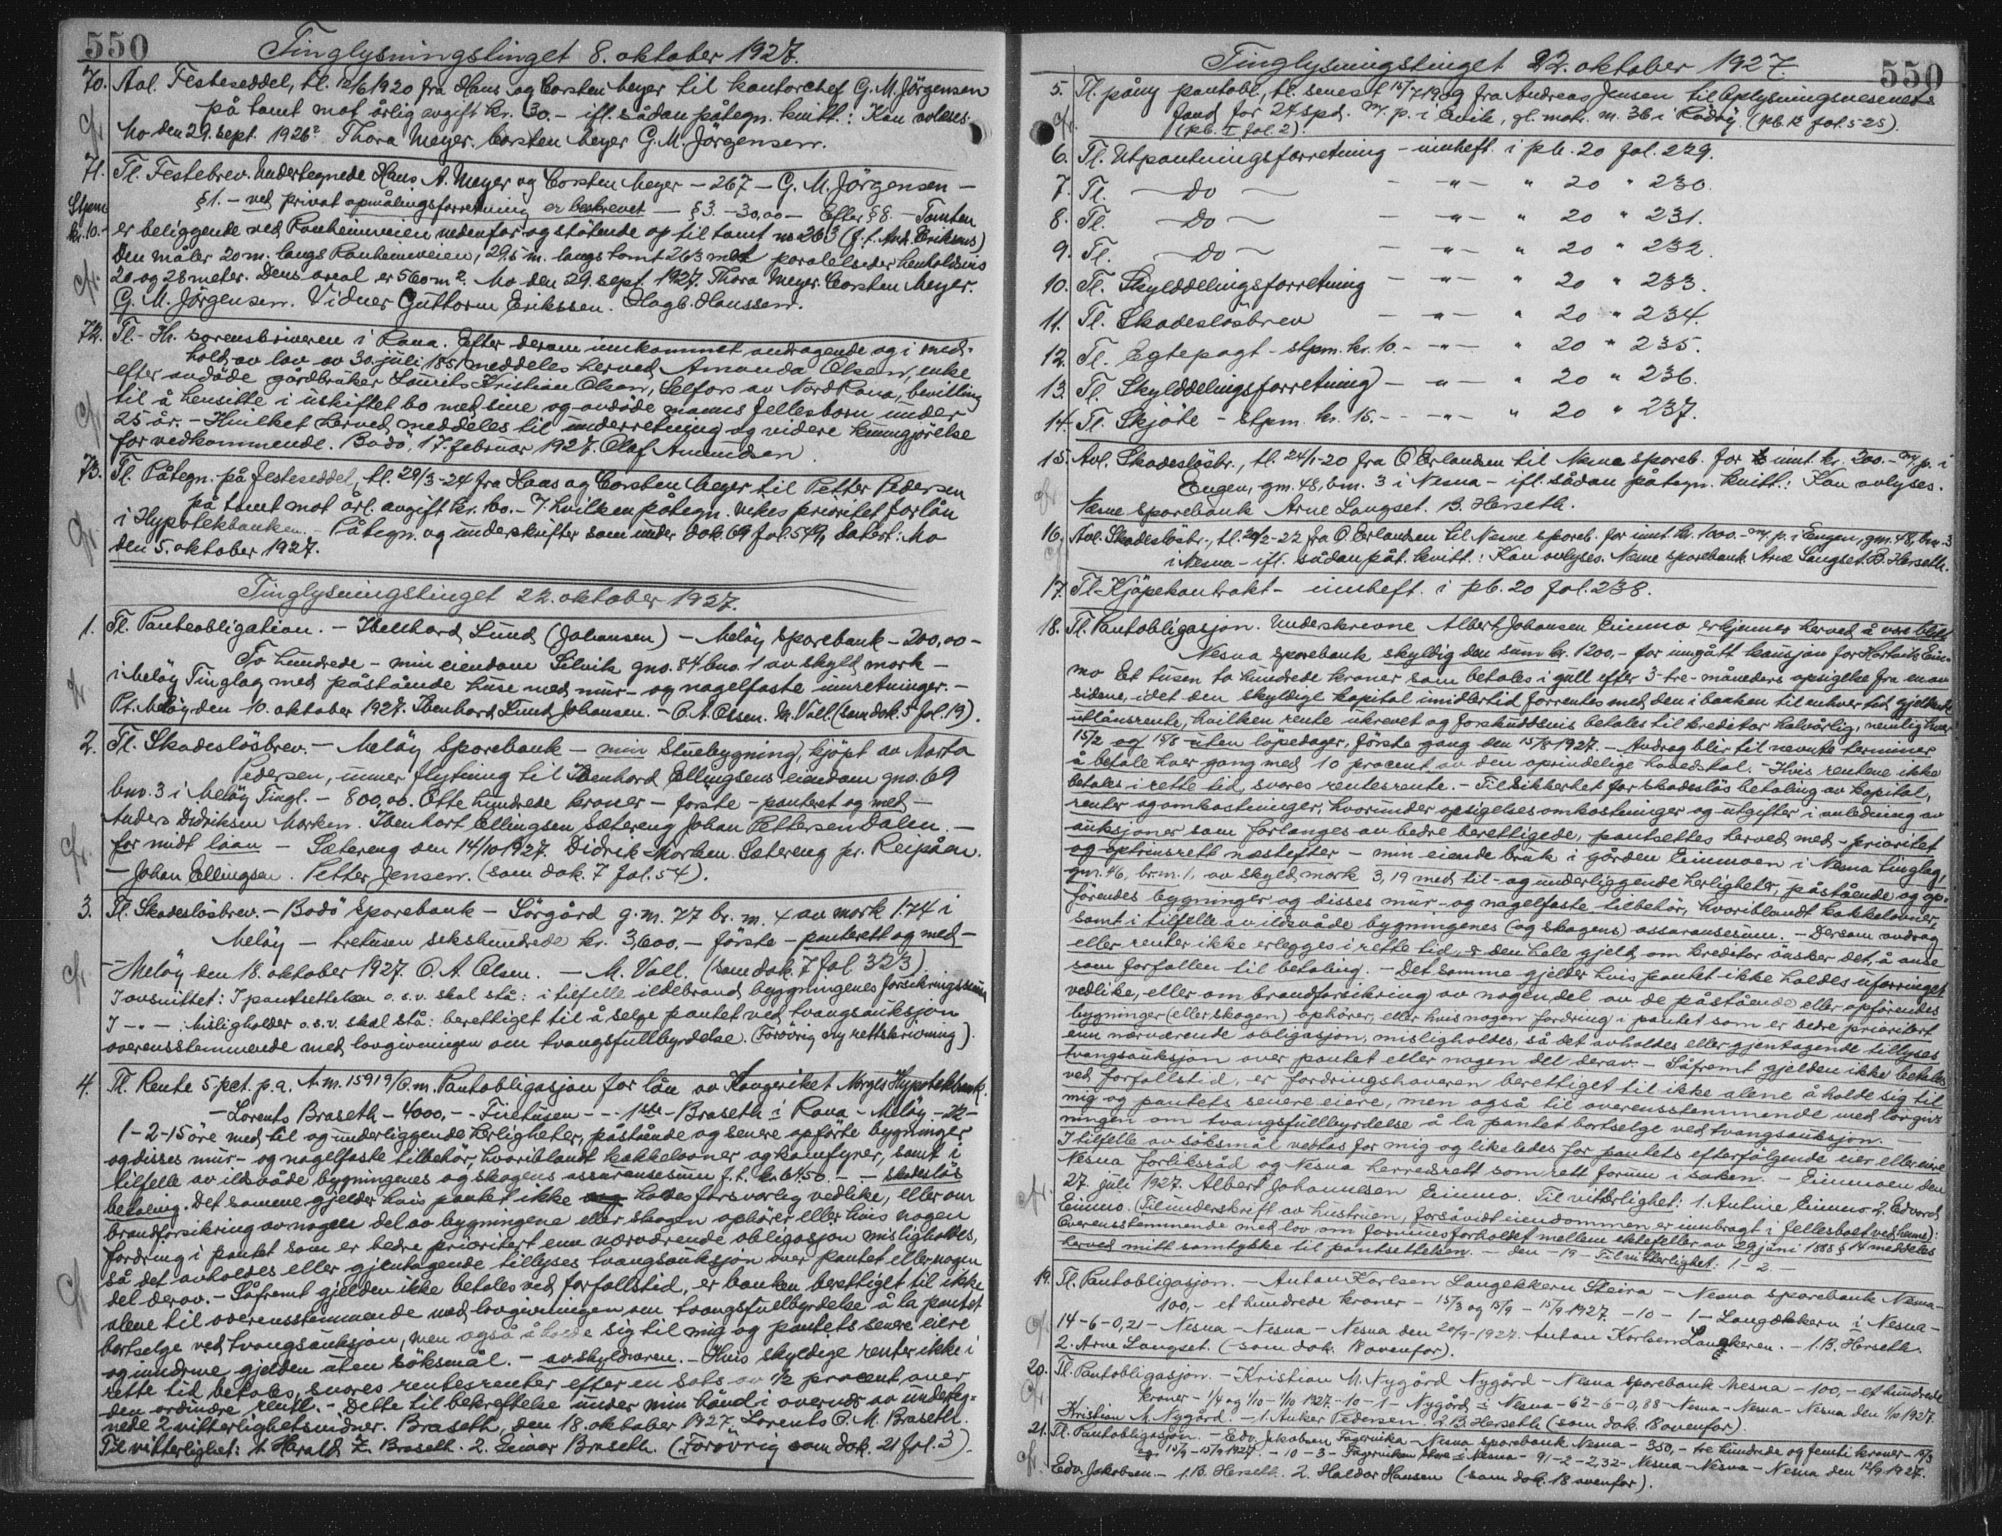 550
Tinglysningstinget 8. oktober 1927.
70. Avl. Festeseddel, tl. 12/6 1920 fra Hans og Corsten Meyer til kontorchef G. M. Jörgensen
på tomt mot årlig avgift kr. 30.- ifl. sådan påtegn. kvitt.: Kan avlyses.
Mo den 29. sept. 1926? Thora Meyer. Corsten Meyer G. M. Jörgensen.
71. Tl. Festebrev. Undertegnede Hans A. Meyer og Corsten Meyer - 267 - G. M. Jörgensen -
Stpm kr. 10.-
§ 1. - ved privat opmålingsforretning er beskrevet - § 3. - 30,00 - Efter § 8. - Tomten
er beliggende ved Ranheimveien nedenfor og stötende op til tomt no 263 (f. t. And. Eriksens)
Den måler 20 m. langs Ranheimveien, 29,5 m. langs tomt 263 med paralelsider henholdsvis
20 og 28 meter. Dens areal er 560 m². Mo den 29. sept. 1927. Thora Meyer. Corsten Meyer.
G. M. Jörgensen. Vidner Guttorm Erikssen. Hagb. Hanssen.
72. Tl. Hr. sorenskriveren i Rana. Efter derom innkommet andragende og i med-
hold av lov av 30. juli 1851 meddeles herved Amanda Olsen, enke
efter avdöde gårdbruker Laurits Kristian Olsen, Selfors av Nord Rana, bevilling
til å hensitte i uskiftet bo med sine og avdöde manns fellesbarn under
25 år. - Hvilket herved meddeles til underretning og videre kunngjörelse
for vedkommende. Bodö, 17. februar 1927. Olaf Amundsen.
73. Tl. Påtegn. på festeseddel, tl. 29/3-24 fra Hans og Corsten Meyer til Petter Pedersen
på tomt mot årl. avgift kr. 160.- 7. hvilken påtegn. vikes prioritet for lån
i Hypotekbanken. Påtegn. og underskrifter som under dok. 69 fol. 549, datert: Mo
den 5. oktober 1927.
Tinglysningstinget 22. oktober 1927.
1. Tl. Panteobligation. - Ibenhard Lund (Johansen) - Melöy sparebank - 200,00 -
To hundrede - min eiendom Selvik gno. 84 bno. 1 av skyld mark -
i Melöy Tinglag med påstående huse med mur- og nagelfaste innretninger. -
Pt. Melöy, den 10. oktober 1927. Ibenhard Lund Johansen. - O. A. Olsen. M. Vall. (som dok. 5 fol. 19).
2. Tl. Skadeslösbrev. - Melöy Sparebank - min Stuebygning, kjöpt av Marta
Pedersen, under flytning til Ibenhard Ellingsens eiendom gno. 69
bno. 3 i Melöy Tingl. - 800,00. Otte hundrede kroner - förste - panteret og med -
Anders Didriksen Morken. Ibenhart Ellingsen Sætereng Johan Pettersen Dalen. -
for midt laan - Sætereng den 14/10 1927. Didrik Morken. Sætereng pr. Reipåen.
- Johan Ellingsen. Petter Jensen. (som dok. 7 fol. 54).
3. Tl. Skadeslösbrev. - Bodö Sparebank - Sörgård g. m. 77 br. m. 4 av mark 1.74 i
Melöy - tretusen sekshundrede kr. 3,600.- förste - panterett og med -
- Melöy den 18. oktober 1927. O. A. Olsen. - M. Vall. (som dok. 7 fol 323)
I avsnittet: I pantsettelsen o.s.v. skal stå: i tilfelle ildebrand, bygningenes forsikringssum
I - " - : Misligholder o.s.v. skal stå: berettiget til å selge pantet ved tvangsauksjon
overensstemmende med lovgivningen om tvangsfullbyrdelse. (Forövrig ny rettskrivning).
4. Tl. Rente 5 pct. p. a. A. m. 15919/G. m. Pantobligasjon for lån av Kongeriket Norges Hypotekbank.
- Lorents Braseth - 4000,- - Firetusen - - - 1ste - Braseth i Rana - Melöy - 22 -
1-2-15 öre med til og underliggende herligheter, påstående og senere opförte bygninger
og disses mur- og nagelfaste tilbehör, hvoriblandt kakkelovner og komfyrer, samt i
tilfelle av ildsvåde bygningenes og skogens assuransesum f. t. kr. 6450.- - - skadeslös
betaling. Det samme gjelder hvis pantet ikke holdes forsvarlig vedlike, eller om
brandforsikring av nogen del av bygningene eller skogen ophörer eller hvis nogen
fordring i pantet som er bedre prioritert enn nærværende obligasjon misligholdes,
så det avholdes eller gjentagende tillyses tvangsauksjon over pantet eller nogen
del derav. - Såfremt gjelden ikke betales ved forfallstid, er banken berettiget til ikke
alene til overensstemmende med lovgivningen om tvangsfullbyrdelse å la pantet
bortselge ved tvangsauksjon, men også å holde sig til mig og pantets senere eiere
og inndrive gjelden uten söksmål. - avskyldneren. - Hvis skyldige renter ikke i
rette tid betales, svares rentesrenter efter en sats av 1/2 procent over
den ordinære rente. - Dette til bekreftelse under min hånd i overvær av underteg-
nede 2 vitterlighetsvidner. Braseth, den 18. oktober 1927. Lorents O. M. Braseth.
Til vitterlighet: 1. Harald Z. Braseth. 2. Einar Braseth. (Forövrig som dok. 21 fol. 3).
Tinglysningstinget 22. oktober 1927.
550
5. Tl. påny pantobl., tl. senest 15/7 1909 fra Andreas Jensen til Oplysningsvesenets
fond for 27 spd. m/ p. i Evik, gl. matr. m. 36 i Rödöy. (pb. 12 fol. 525).
(pb. I fol. 2).
6. Tl. Utpantningsforretning - innheft. i pb. 20 fol. 229.
7. Tl. - Do - - " - " 20 " 230.
8. Tl. - Do - - " - " 20 " 231.
9. Tl. - Do - - " - " 20 " 232.
10. Tl. Skylddelingsforretning - " - " 20 " 233.
11. Tl. Skadeslösbrev - " - " 20 " 234.
12. Tl. Egtepagt - stpm. kr. 10.- - " - " 20 " 235.
13. Tl. Skylddelingsforretning - " - " 20 " 236.
14. Tl. Skjöte - Stpm. kr. 16.- - " - " 20 " 237.
15. Avl. Skadeslösbr., tl. 24/1-20 fra O. Erlandsen til Nesne spareb. for innt. kr. 200.- m/ p. i
Engen, gm. 48, bm. 3 i Nesna - ifl. sådan påtegn. kvitt.: Kan avlyses.
Nesne sparebank Arne Langset. B. Herseth.
16. Avl. Skadeslösbr., tl. 20/2-22 fra O. Erlandsen til Nesne spareb. for innt. kr. 1000.- m/ p. i Engen, gm. 48, bm. 3
i Nesna - ifl. sådan påt. kvitt.: Kan avlyses. Nesne sparebank Arne Langset. B. Herseth.
17. Tl. Kjöpekontrakt - innheft. i pb. 20 fol. 238.
18. Tl. Pantobligasjon. Underskrevne Albert Johansen Einmo erkjenner herved å være blitt
Nesna sparebank skyldig den sum kr. 1200,- for inngått kausjon for Ein-
mo Et tusen to hundrede kroner som betales i gull efter 3-tre-måneders opsigelse fra en av
sidene, idet den skyldige kapital imidlertid forrentes med den i banken til enhver tid gjeldende
utlånsrente, hvilken rente ukrevet og forskuddsvis betales til kreditor halvårlig, nemlig hver
15/2 og 15/8 uten löpedager, förste gang den 15/8 1927. - Avdrag blir til nevnte terminer
å betale hver gang med 10 procent av den oprindelige hovedstol. - Hvis rentene ikke
betales i rette tid, svares rentesrente. - Til sikkerhet for skadeslös betaling av kapital,
renter og omkostninger, hvorunder opsigelsesomkostninger og utgifter i anledning av
auksjoner som forlanges av bedre berettigede, pantsettes herved med - prioritet
og optrinsrett næstefter - min eiende bruk i gården Einmoen i Nesna tinglag,
gm. 46, brm. 1, av skyld mark 3,19 med til- og underliggende herligheter, påstående og op-
förendes bygninger og disses mur- og nagelfaste tilbehör, hvoriblandt kakkelovner
samt i tilfelle av ildsvåde bygningenes (og skogens) assuransesum. - Dersom avdrag
eller renter ikke erlegges i rette tid, er den hele gjeld, om kreditor önsker det, å anse
som forfallen til betaling. - Det samme gjelder hvis pantet ikke holdes uforringet
vedlike, eller om brandforsikring av nogen del av de påstående eller opförendes
bygninger (eller skogen) ophörer, eller hvis nogen fordring i pantet som er bedre prioritert
enn nærværende obligasjon, misligholdes, så det avholdes eller gjentagende tillyses
tvangsauksjon over pantet eller nogen del derav. - Såfremt gjelden ikke betales
ved forfallstid, er fordringshaveren berettiget til ikke alene å holde sig til
mig og pantets senere eiere, men også til overensstemmende med lovgiv-
ningen om tvangsfullbyrdelse å la pantet bortselge ved tvangsauksjon. -
I tilfelle av söksmål vedtas for mig og likeledes for pantets efterfölgende eier eller eiere
Nesna forliksråd og Nesna herredsrett som rett forum i saken. - Einmoen den
27. juli 1927. Albert Johannesen Einmo. Til vitterlighet: 1. Antine Einmo 2. Edvard
Einmo. (Til underskrift av hustruen, forsåvidt eiendommen er innbragt i fellesboet ved henne):
Overensstemmende med lov om formuesforholdet mellem ektefeller av 29. juni 1888 § 14 meddeles
herved mitt samtykke til pantsettelsen. - den - 19 - Til vitterlighet: 1 - 2. -
19. Tl. Pantobligasjon. - Anton Korlsen Langekkern Steira - Nesna sparebank Nesna -
100,- et hundrede kroner - 15/3 og 15/9 - 15/9 1927. - 10 - 1 - Langåkkern i Nesna -
14-6-0,21 - Nesna - Nesna - Nesna den 20/9-1927. Anton Korlsen Langkeren. - 1. B. Herseth.
2. Arne Langset. (som dok. 18 ovenfor).
20. Tl. Pantobligasjon. - Kristian M. Nygård Nygård - Nesna sparebank Nesna - 100,- et hundrede
kroner - 1/4 og 1/10 - 1/10 1927. - 10 - 1 - Nygård i Nesna - 62-6-0,88 - Nesna - Nesna - Nesna den 1/10 1927.
Kristian M. Nygård. - 1. Anker Pedersen. 2. B. Herseth (som dok. 18 ovenfor).
21. Tl. Pantobligasjon. - Edv. Jakobsen Fagervika - Nesna sparebank Nesna - 350,- tre hundrede og femti kroner - 15/3
og 15/9 - 15/9 1927. - 10 - 3 - Fagerviken store i Nesna - 91-2-2,32 - Nesna - Nesna - Nesna den 12/9 1927.
Edv. Jakobsen. - 1. B. Herseth. 2. Haldor Hansen (som dok. 18 ovenfor).